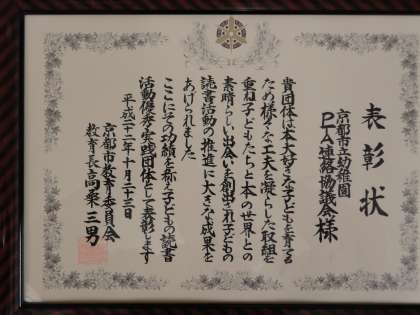 表彰状
京都市立幼稚園
PTA連絡協議会様
貴団体は本大好きな子どもを育てる
ため様々な工夫を凝らした取組を
重ね子どもたちと本の世界との
素晴らしい出会いを創出され子どもの
読書活動の推進に大きな成果を
あげられました
ここにその功績を称え子どもの読書
活動優秀実践団体として表彰します
平成二十二年十月二十三日
京都市教育委員会
教育長高桒三男